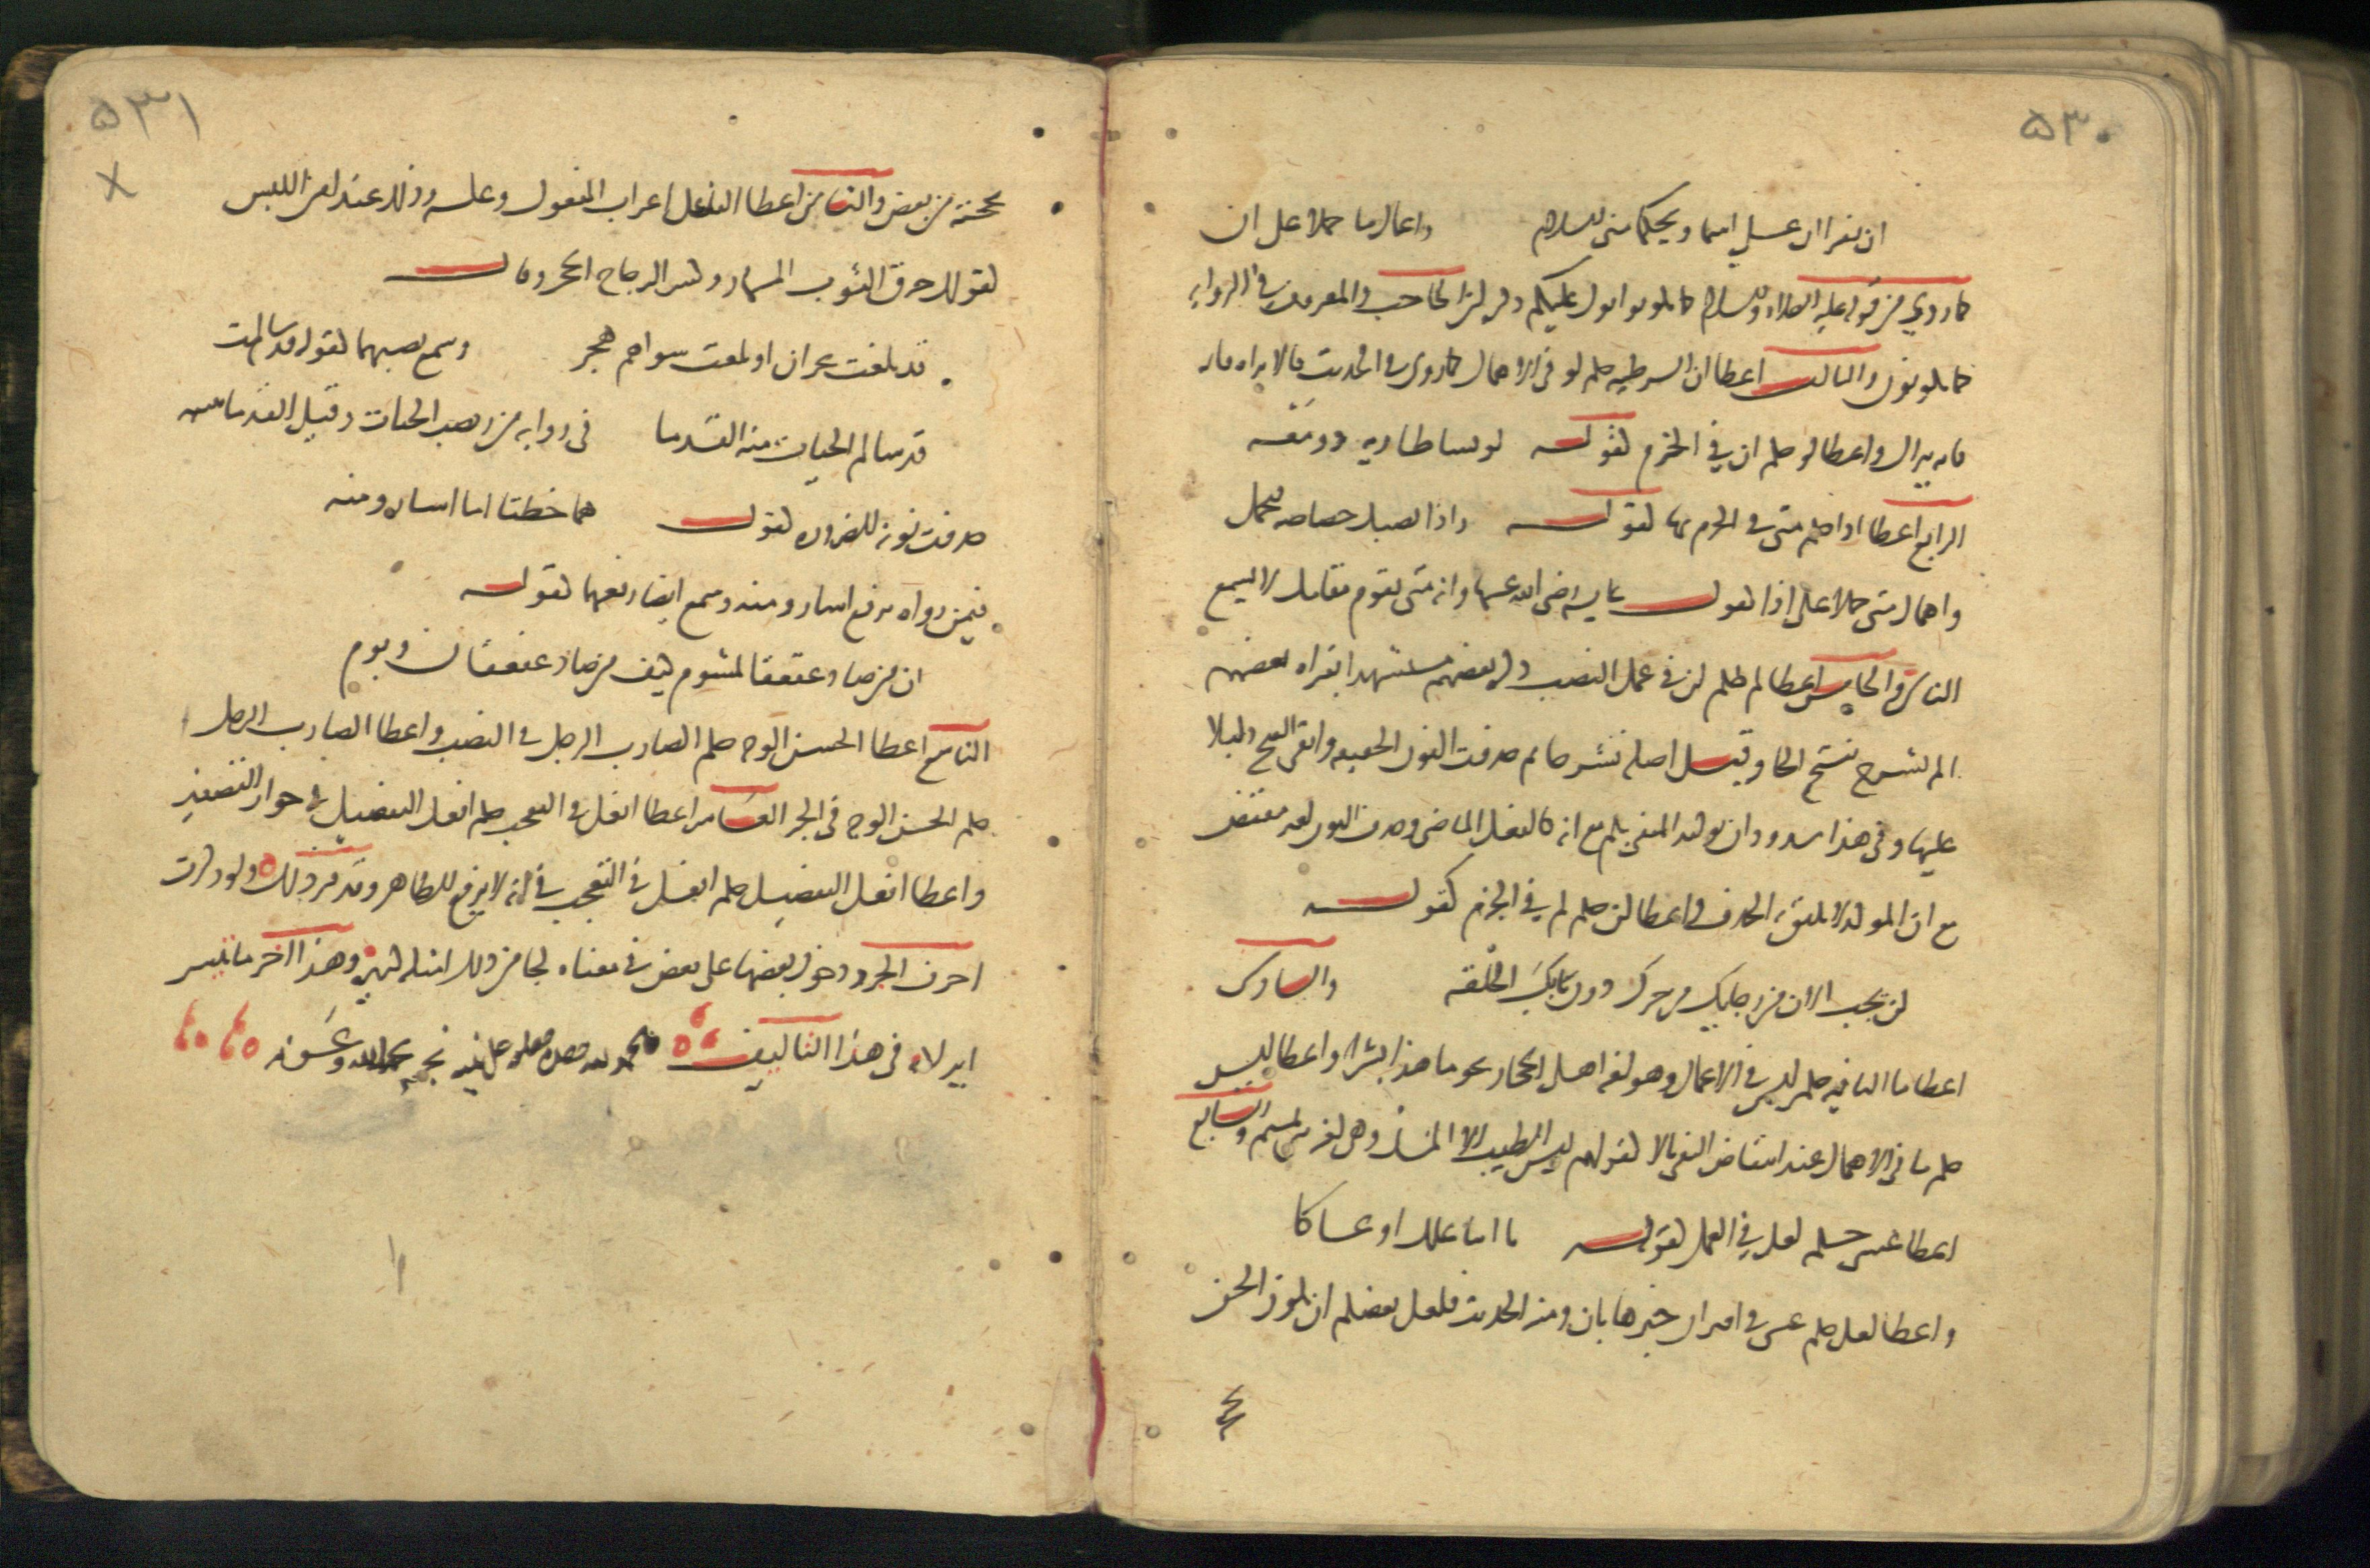 ٥٣٠
ان تقرآن على اسما ويحكما مني السلام واعمال ما حملا على ان
كما روي من قوله عليه الصلاة والسلام كما تكونوا يولى عليكم ذكره ابن الحاجب والمعروف في الرواية
كما تكونون والثالث اعطا ان الشرطيه حكم لو في الاهمال كما روي في الحديث فالا تراه فانه
فانه يراك واعطا لو حكم ان في الجزم كقوله لو يشا طار به ذو ميعة
الرابع اعطا اذا حكم متى في الجزم بها كقوله واذا تصبك خصاصه فتحمل
واهمال متى حملا على اذا كقول عايشه رضي الله عنها وانه متى يقوم مقامك لا يسمع
الناس والخامس اعطا لم حكم لن في عمل النصب ذكره بعضهم مستشهدا بقراة بعضهم
الم نشرح بفتح الحا وقيل اصله نشرحا ثم حذفت النون الخفيفه وابقي الفتح دليلا
عليها وفي هذا شذوذان توكيد المنفي بلم مع انه كالفعل الماضي وحذف النون لغير مقتض
مع ان الموكد لا يليق به الحذف واعطا لن حكم لم في الجزم كقوله
لن يخب الان من رجايك من حرك دون بابك الحلقه والسادس
اعطا ما النافيه حكم ليس في الاعمال وهو لغة اهل الحجاز نحو ما هذا بشرا واعطا ليس
حكم ما في الاهمال عند انتقاض النفي بالا كقولهم ليس الطيب الا المسك وهي لغة تميم والسابع
اعطا عسى حكم لعل في العمل كقوله يا ابتا علك او عساكا
واعطا لعل حكم عسى في اقتران خبرها بان ومنه الحديث فلعل بعضكم ان يكون الحن
٥٣١
بحجته من بعض والثامن اعطا الفاعل اعراب المفعول وعكسه وذلك عند امن اللبس
كقولك خرق الثوب المسمار وكسر الزجاج الحجر وقال
قد بلغت نجران او بلغت سواتهم هجر وسمع نصبهما كقوله قد سالمت
قد سالم الحيات منه القدما في رواية من نصب الحيات وقيل القدما تثنيه
حذفت نونه للضرورة كقوله هما خطتا اما اسار ومنه
فيمن رواه برفع اسار ومنه وسمع ايضا رفعهما كقوله
ان من صاد عقعقا لمشوم كيف من صاد عقعقان وبوم
التاسع اعطا الحسن الوجه حكم الضارب الرجل في النصب واعطا الضارب الرجل
حكم الحسن الوجه في الجر العاشر اعطا افعل في التعجب حكم افعل التفضيل في جواز التصغير
واعطا افعل التفضيل حكم افعل في التعجب في انه لا يرفع الظاهر وقد مر ذلك ولو ذكرت
احرف الجر ودخول بعضها على بعض في معناه لجا من ذلك امثله كثيره وهذا اخر ما تيسر
ايراده في هذا التاليف